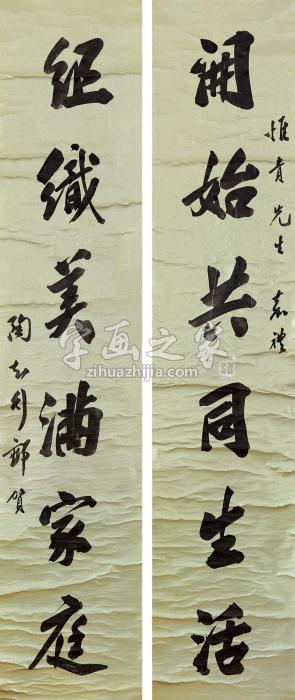 惟贵先生 嘉禮
開始共同生活
組織美满家庭
陶知行鄭賀
字画之家
zihuazhijia.com